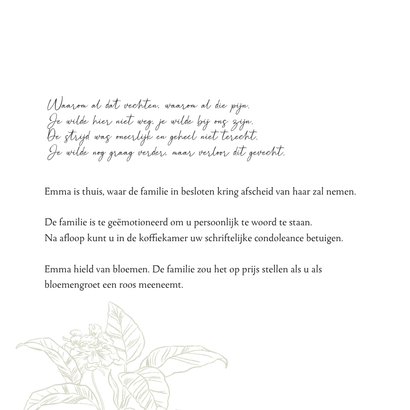 Waarom al dat vechten, waarom al die pijn.
Je wilde hier niet weg, je wilde bij ons zijn.
De strijd was oneerlijk en geheel niet terecht.
Je wilde nog graag verder, maar verloor dit gevecht.
Emma is thuis, waar de familie in besloten kring afscheid van haar zal nemen.
De familie is te geëmotioneerd om u persoonlijk te woord te staan.
Na afloop kunt u in de koffiekamer uw schriftelijke condoleance betuigen.
Emma hield van bloemen. De familie zou het op prijs stellen als u als
bloemengroet een roos meeneemt.